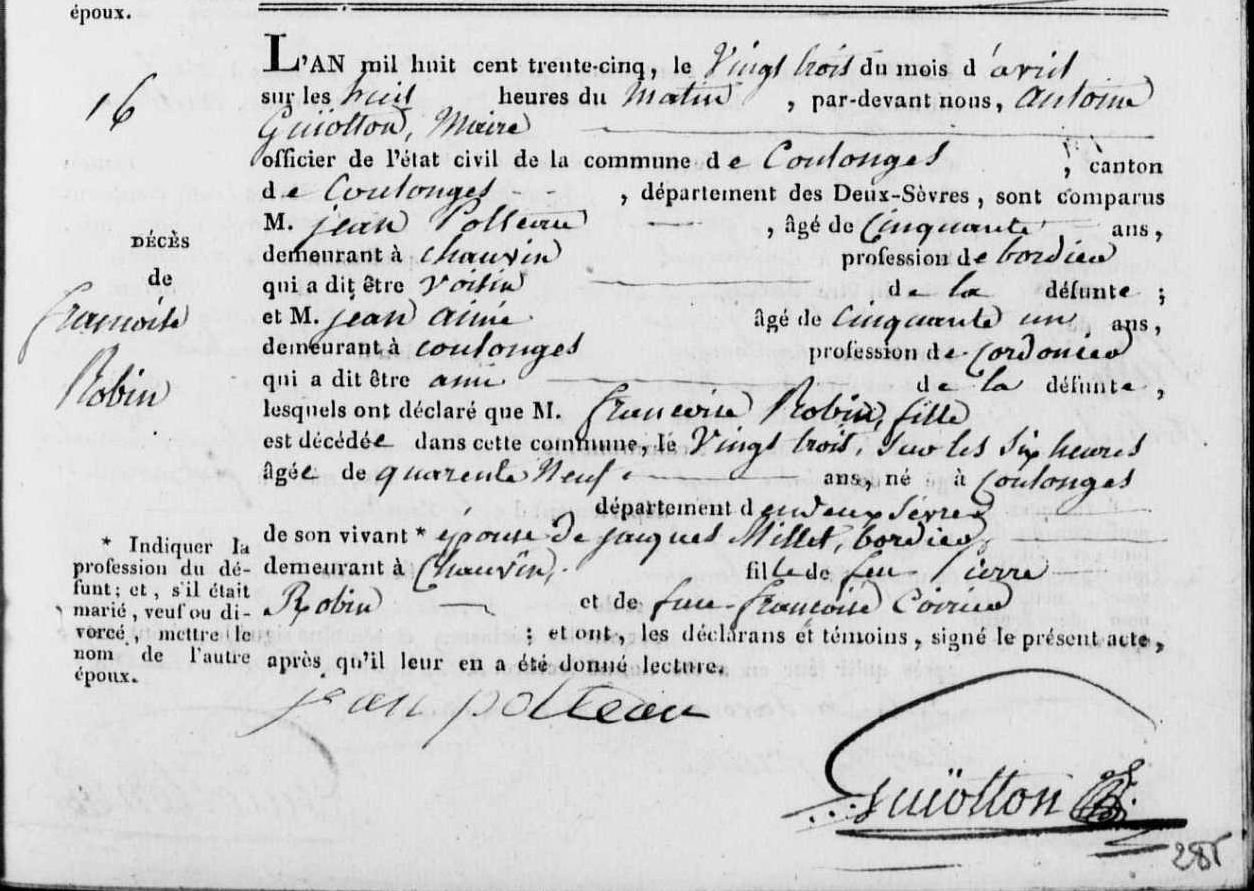 époux.
L'AN mil huit cent trente-cinq, le Vingt trois du mois d'avril
16
sur les huit heures du matin, par-devant nous, antoine
Guïotton, Maire
officier de l'état civil de la commune de Coulonges, canton
de Coulonges, département des Deux-Sèvres, sont comparus
M. jean, âgé de Cinquante ans,
demeurant à chauvin profession de bordieu
qui a dit être voisin de la défunte;
et M. jean aimé âgé de cinquante un ans,
demeurant à coulonges profession de Cordonieu
qui a dit être ami de la défunte,
DÉCÈS
de
francoise
Robin
lesquels ont déclaré que M. francoise Robin, fille
est décédée dans cette commune, le Vingt trois, sur les six heures
âgée de quarente Neuf ans, né à Coulonges
département d en deux Sèvres
de son vivant * épouse de jacques Millet, bordieu
demeurant à Chauvin, fille de feu Pierre
Robin et de feue francoise
; et ont, les déclarans et témoins, signé le présent acte,
après qu'il leur en a été donné lecture.
* Indiquer la
profession du dé-
funt; et, s'il était
marié, veuf ou di-
vorcé, mettre le
nom de l'autre
époux.
jean polteau
Guïotton
285